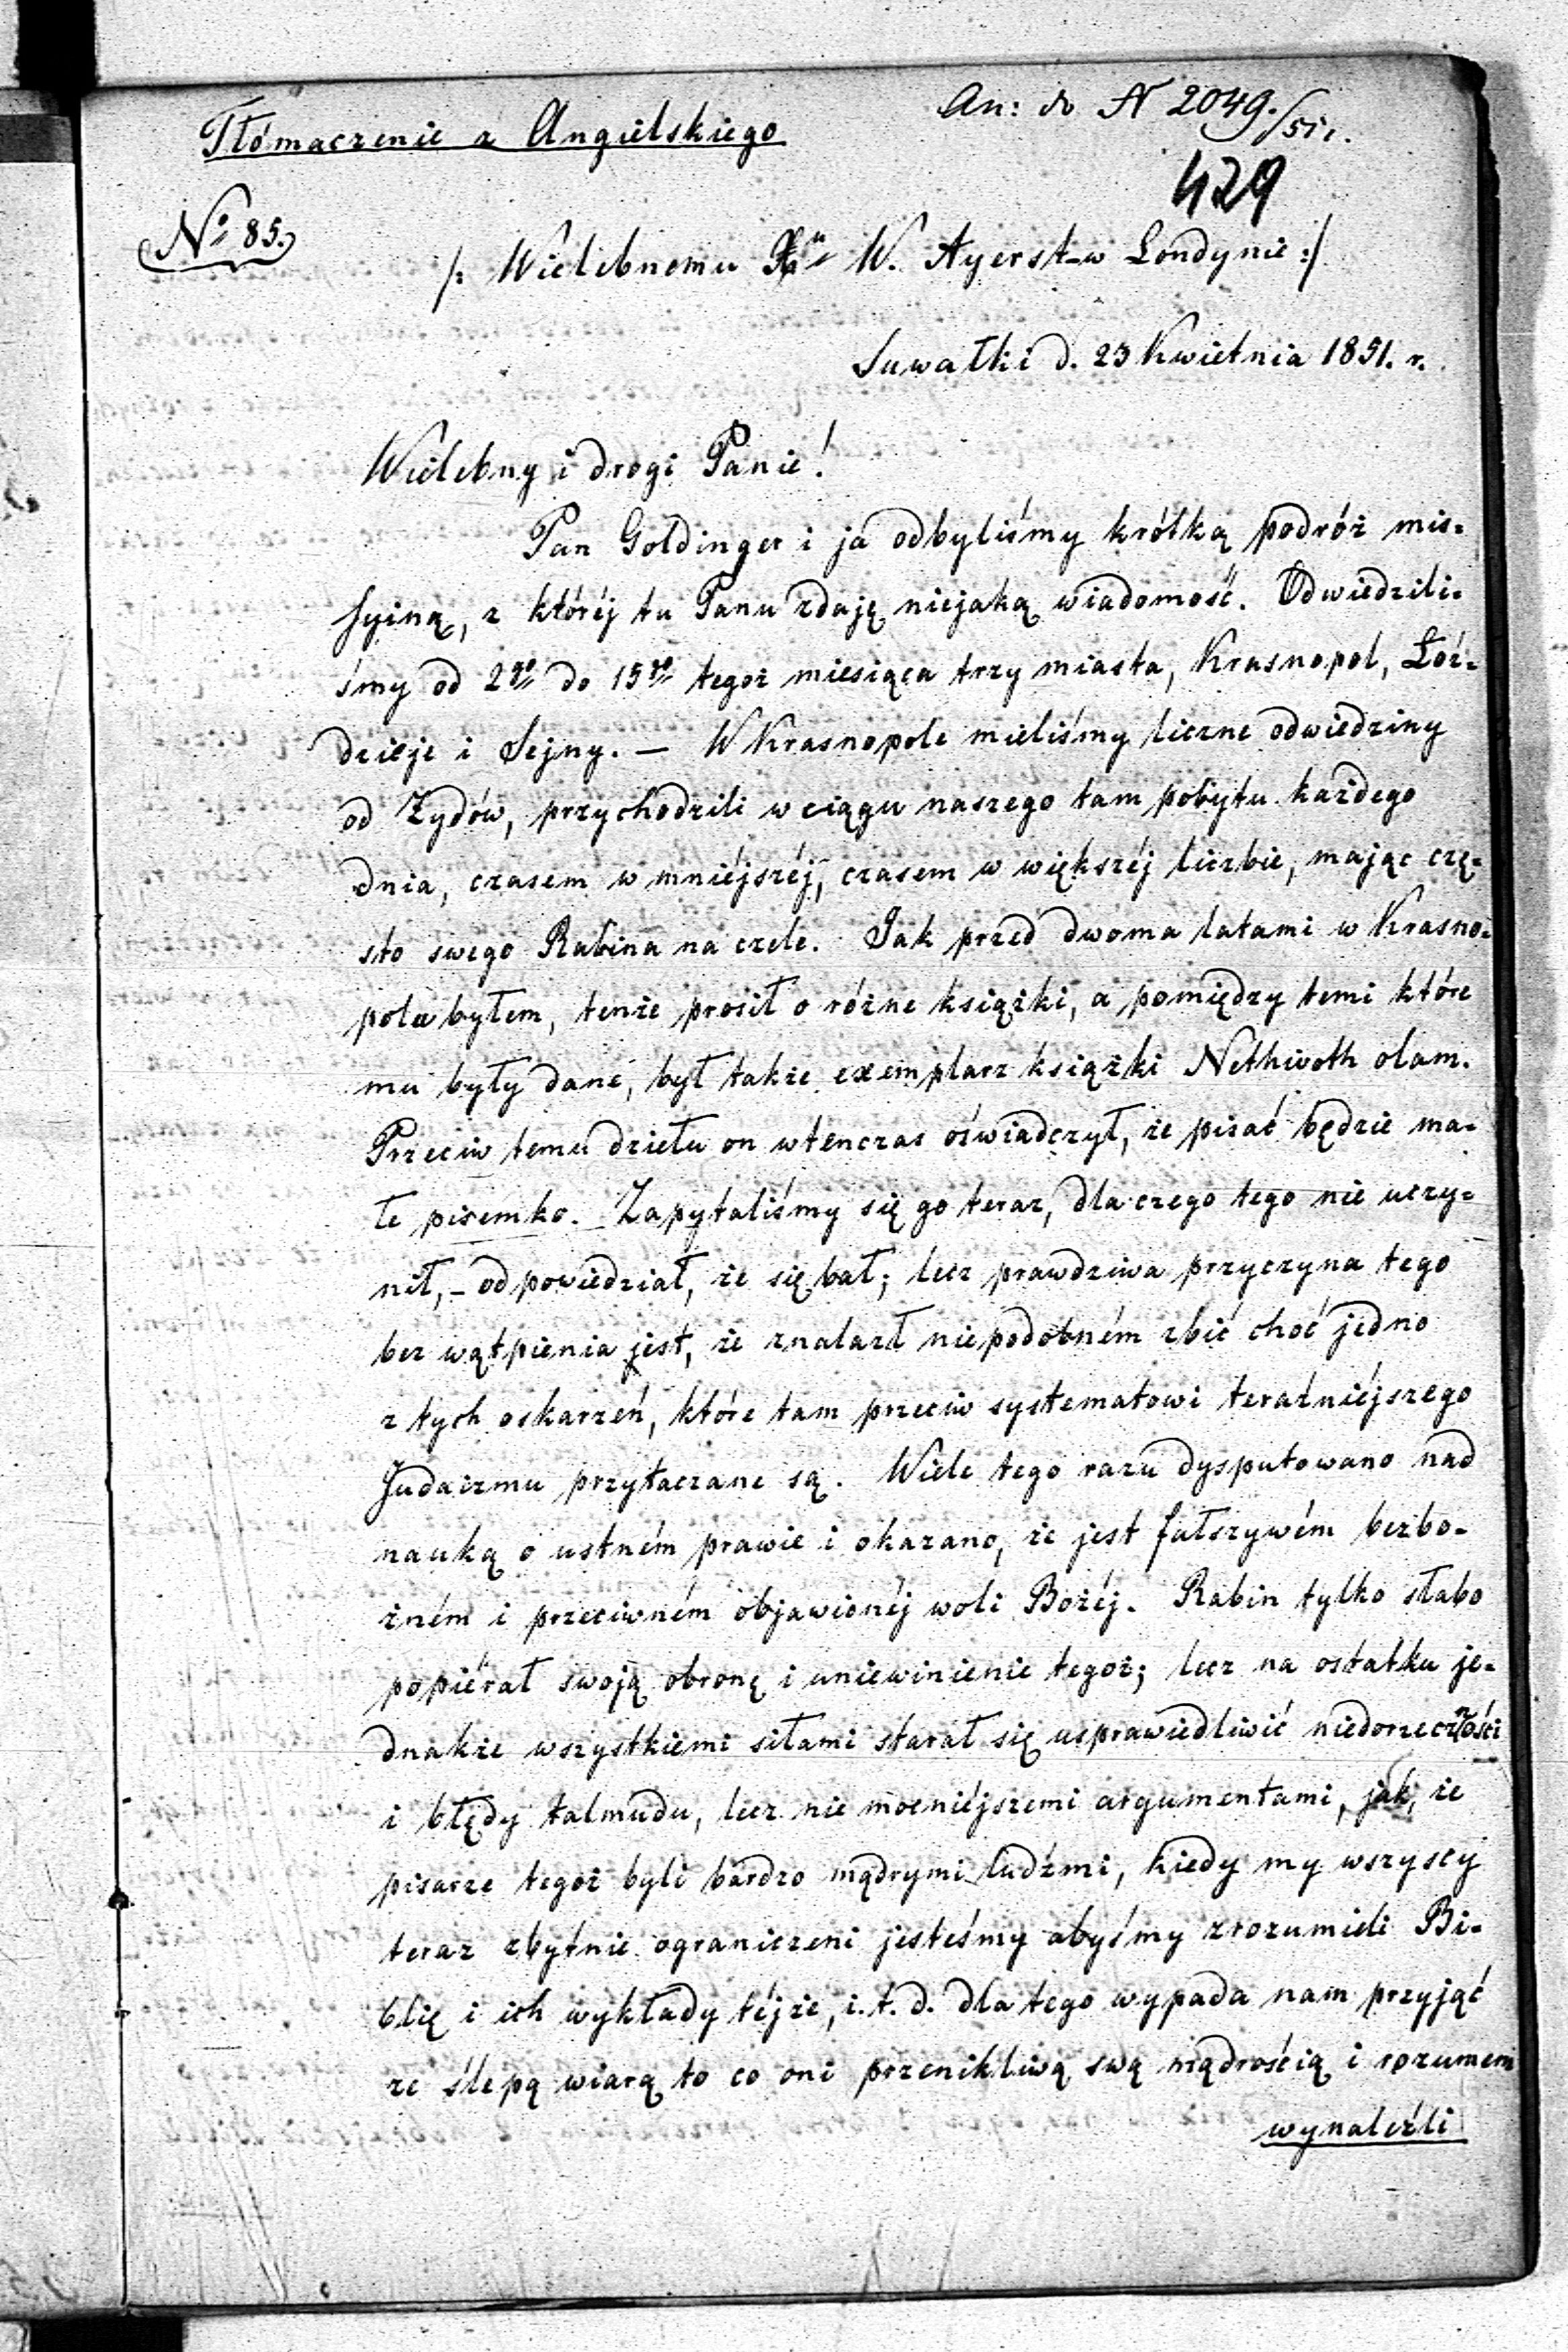 Tłómaczenie z Angielskiego
An: do N 2049./51 r.
429
No 85.
/: Wielebnemu Xu W. Ayerst w Londynie :/
Suwałki d. 23 Kwietnia 1851. r.
Wielebny i drogi Panie!
Pan Goldinger i ja odbyliśmy krótką podróż mis-
syiną, z któréj tu Panu zdaję niejaką wiadomość. Odwiedzili-
śmy od 2go do 15go tegoż miesiąca trzy miasta, Krasnopol, Łoź-
dzieje i Sejny. — W Krasnopole mieliśmy liczne odwiedziny
od Żydów, przychodzili w ciągu naszego tam pobytu każdego
dnia, czasem w mniéjszéj, czasem w większéj liczbie, mając czę-
sto swego Rabina na czele. Jak przed dwoma latami w Krasno-
polu byłem, tenże prosił o różne książki, a pomiędzy temi które
mu były dane, był także exemplarz książki Nethivoth olam.
Przeciw temu dziełu on wtenczas oświadczył, że pisać będzie ma-
łe pisemko. Zapytaliśmy się go teraz, dla czego tego nie uczy-
nił, – odpowiedział, że się bał; lecz prawdziwa przyczyna tego
bez wątpienia jest, że znalazł niepodobném zbić choć jedno
z tych oskarzeń, które tam przeciw systematowi teraźniéjszego
Judaizmu przytaczane są. Wiele tego razu dysputowano nad
nauką o ustném prawie i okazano, że jest fałszywém bezbo-
żném i przeciwném objawionéj woli Bożéj. Rabin tylko słabo
popiérał swoją obronę i uniewinienie tegoż; lecz na ostatku je-
dnakże wszystkiemi siłami starał się usprawiedliwić niedorzeczności
i błędy talmudu, lecz nie mocniéjszemi argumentami, jak, że
pisarze tegoż byli bardzo mądrymi ludźmi, kiedy my wszyscy
teraz zbytnie ograniczeni jesteśmy abyśmy zrozumieli Bi-
blię i ich wykłady téjże, i. t. d. dla tego wypada nam przyjąć
ze ślepą wiarą to co oni przenikliwą swą mądrością i rozumem
wynaleźli